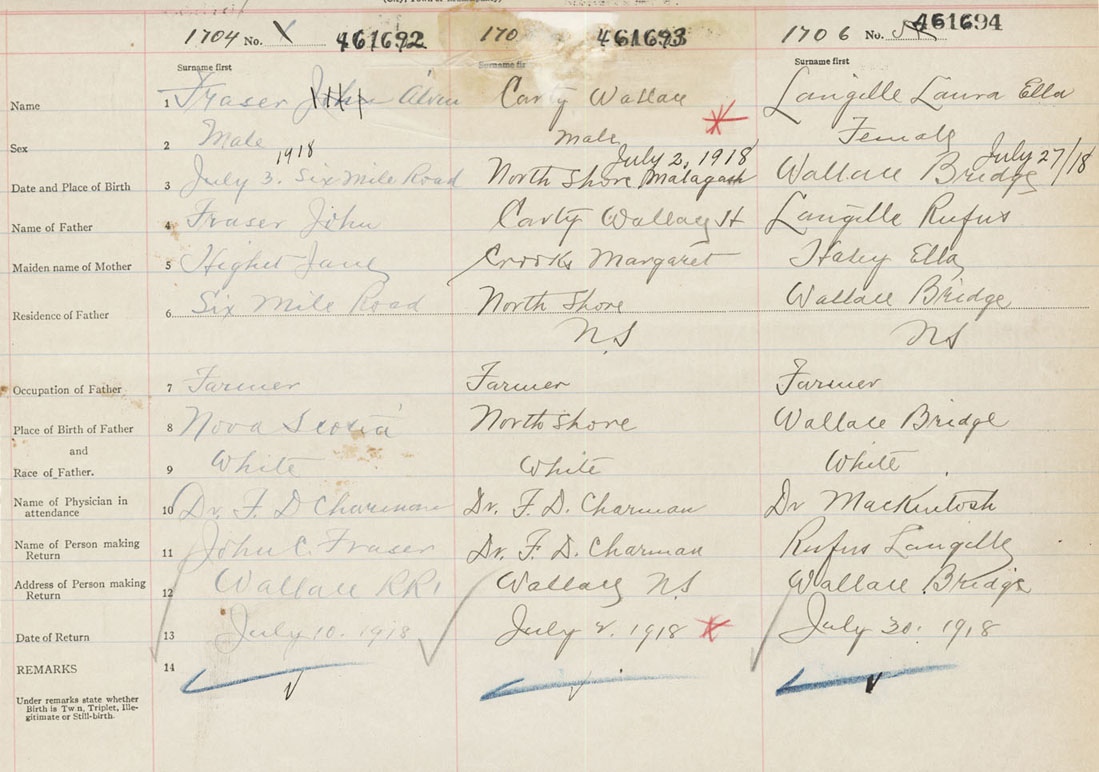 1704 No. X 461692 170 461693 1706 No. 461694
Surname first Surname first Surname first
Name 1 Fraser John Alvin Carty Wallace Langille Laura Ella
Sex 2 Male male Female
1918 July 2, 1918 July 27/18
Date and Place of Birth 3 July 3. Six Mile Road North Shore Malagash Wallace Bridge
Name of Father 4 Fraser John Carty Wallace H Langille Rufus
Maiden name of Mother 5 Highet Jane Crooks Margaret Haley Ella
Residence of Father 6 Six Mile Road North Shore Wallace Bridge
N.S NS
Occupation of Father 7 Farmer Farmer Farmer
Place of Birth of Father 8 Nova Scotia North Shore Wallace Bridge
and
Race of Father. 9 White White White
Name of Physician in
attendance 10 Dr. F. D Charman Dr. F. D. Charman Dr MacKintosh
Name of Person making
Return 11 John C. Fraser Dr. F. D. Charman Rufus Langille
Address of Person making
Return 12 Wallace RR1 Wallace N.S Wallace Bridge
Date of Return 13 July 10. 1918 July 8. 1918 July 30. 1918
REMARKS 14
Under remarks state whether
Birth is Twin, Triplet, Ille-
gitimate or Still-birth.